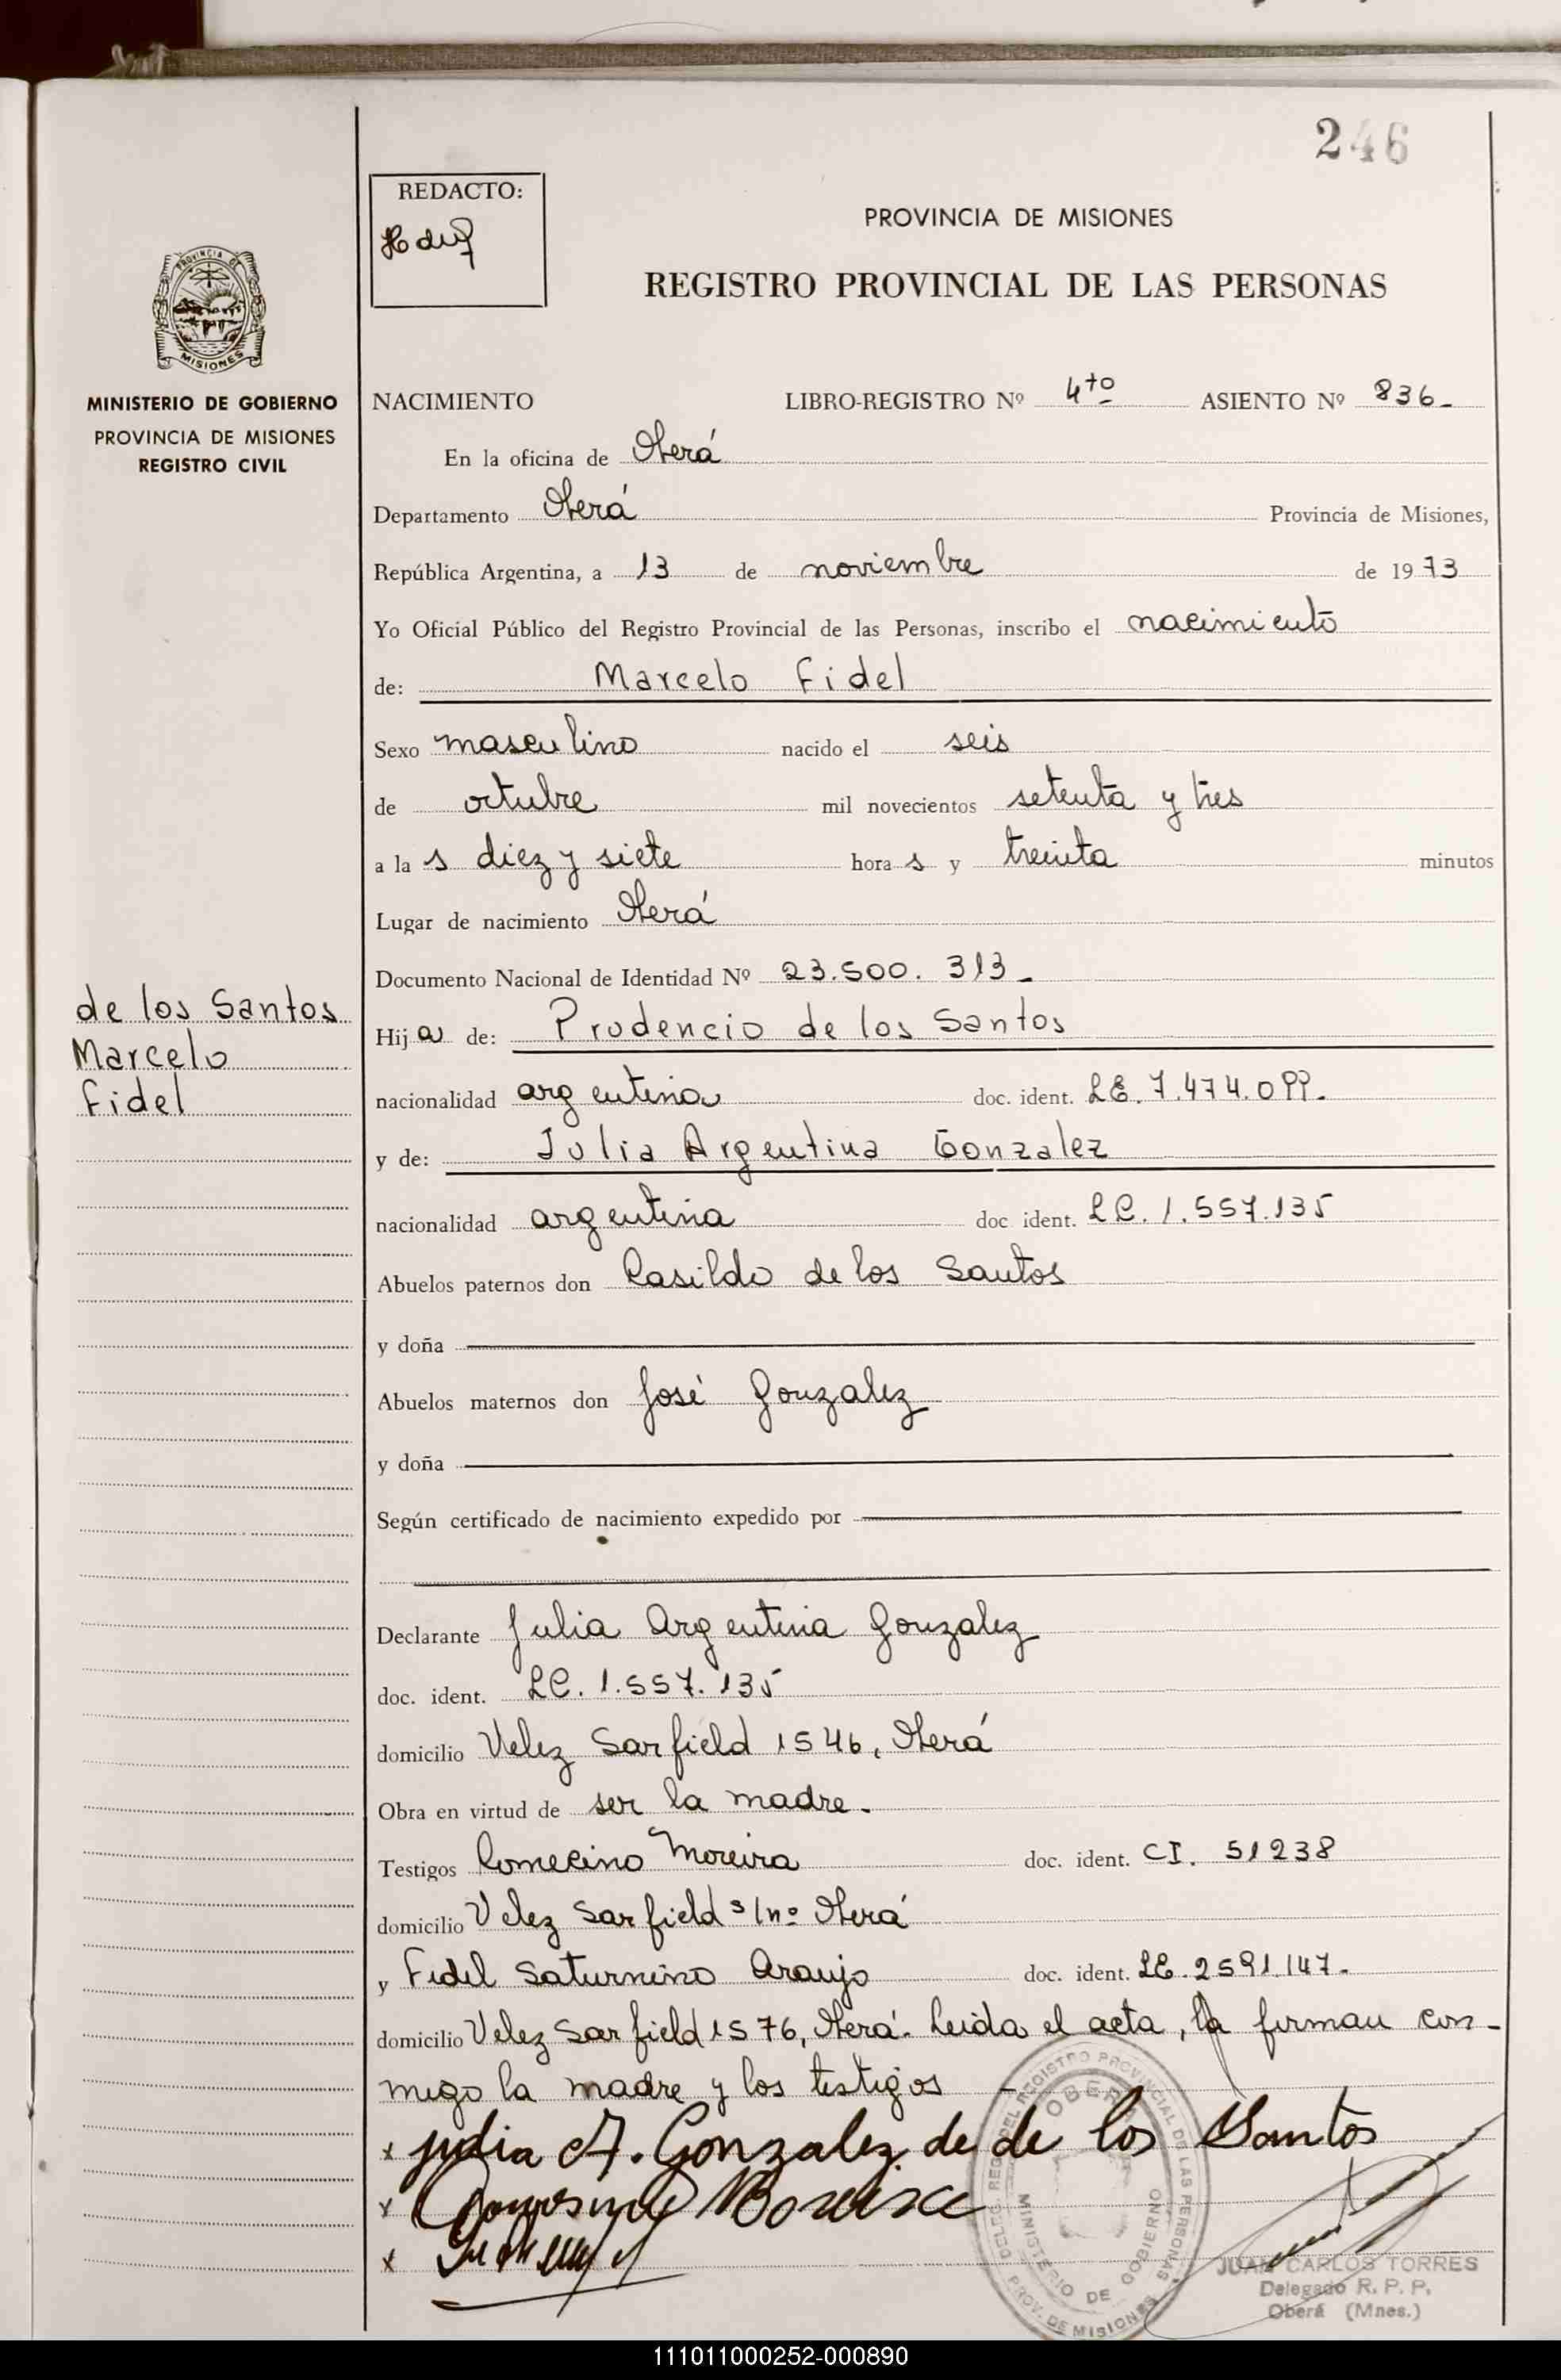 246
REDACTO:
PROVINCIA DE MISIONES
REGISTRO PROVINCIAL DE LAS PERSONAS
PROVINCIA DE
MISIONES
MINISTERIO DE GOBIERNO
PROVINCIA DE MISIONES
REGISTRO CIVIL
NACIMIENTO LIBRO-REGISTRO Nº 4to ASIENTO Nº 836-
En la oficina de Oberá
Departamento Oberá Provincia de Misiones,
República Argentina, a 13 de noviembre de 1973
Yo Oficial Público del Registro Provincial de las Personas, inscribo el nacimiento
de: Marcelo Fidel
Sexo masculino nacido el seis
de octubre mil novecientos setenta y tres
a la s diez y siete hora s y treinta minutos
Lugar de nacimiento Oberá
Documento Nacional de Identidad Nº 23.500.313-
de los Santos
Marcelo
Fidel
Hij o de: Prudencio de los Santos
nacionalidad argentina doc. ident. LE. 7.474.099.
y de: Julia Argentina Gonzalez
nacionalidad argentina doc. ident. LC. 1.557.135
Abuelos paternos don Casildo de los Santos
y doña
Abuelos maternos don José Gonzalez
y doña
Según certificado de nacimiento expedido por
Declarante Julia Argentina Gonzalez
doc. ident. LC. 1.557.135
domicilio Velez Sarfield 1546, Oberá
Obra en virtud de ser la madre.
Testigos Moreira doc. ident. CI. 51238
domicilio Velez Sarfield s/nº Oberá
y Fidel Saturnino Araujo doc. ident. LE. 2591.147-
domicilio Velez Sarfield 1576, Oberá. Leida el acta, la firman con-
migo la madre y los testigos -
x Julia A. Gonzalez de de los Santos
x
x
DELEG. REG. DEL REGISTRO PROVINCIAL DE LAS PERSONAS
OBERA
MINISTERIO DE GOBIERNO
PROV. DE MISIONES
JUAN CARLOS TORRES
Delegado R. P. P.
Oberá (Mnes.)
111011000252-000890